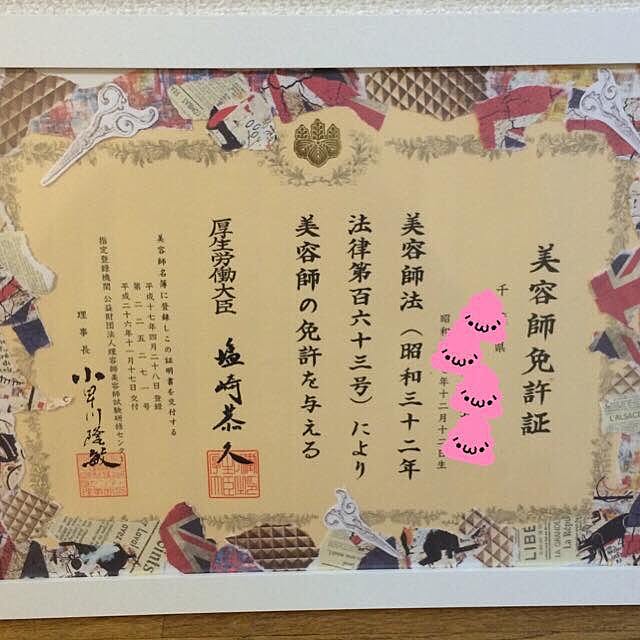 美容師免許証
千 県
昭和 年十二月十二日生
美容師法（昭和三十二年
法律第百六十三号）により
美容師の免許を与える
厚生労働大臣 塩崎恭久
美容師名簿に登録しこの証明書を交付する
平成十七年四月二十八日登録
第二二五二七一号
平成二十六年十一月十七日交付
指定登録機関 公益財団法人理容師美容師試験研修センター
理事長 小早川隆敏
LIBE